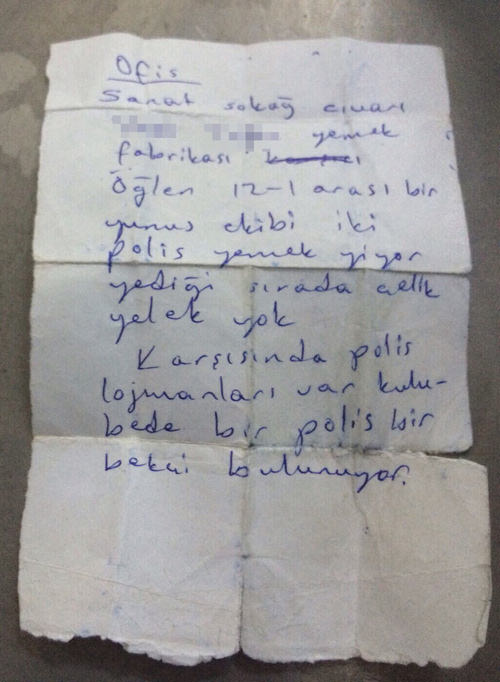 Ofis
Sanat sokağ cıvarı
yemek
fabrikası
Öğlen 12-1 arası bir
yunus ekibi iki
polis yemek yiyor
yediği sırada çelik
yelek yok
Karşısında polis
lojmanları var kulu-
bede bir polis bir
bekçi bulunuyor.